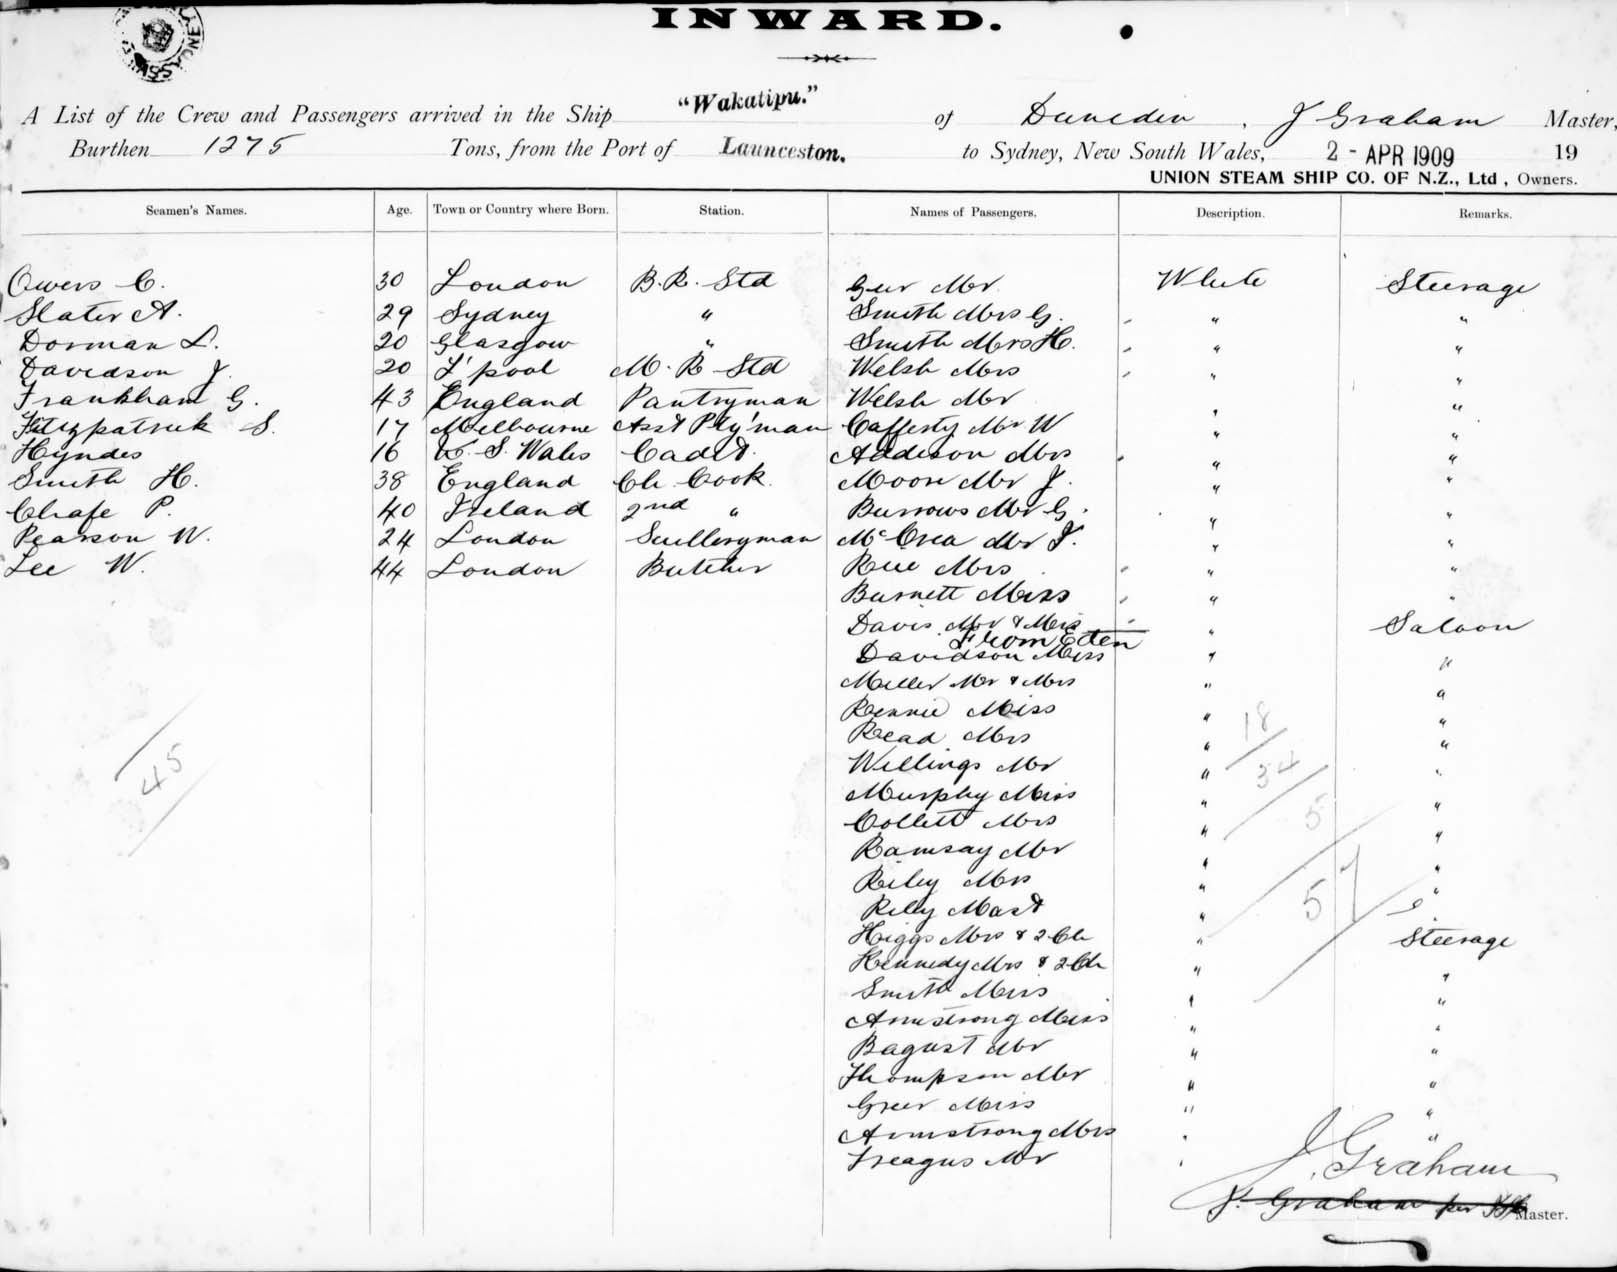 INWARD.
A List of the Crew and Passengers arrived in the Ship "Wakatipu." of Dunedin, J Graham Master,
Burthen 1275 Tons, from the Port of Launceston. to Sydney, New South Wales, 2 - APR 1909 19
UNION STEAM SHIP CO. OF N.Z., Ltd, Owners.
Seamen's Names. Age. Town or Country where Born. Station. Names of Passengers. Description. Remarks.
Owers C. 30 London B.R. Std Geer Mr White Steerage
Slater A. 29 Sydney " Smith Mrs G. " "
Dorman L. 20 Glasgow " Smith Mrs H. " "
Davidson J. 20 L'pool M.R. Std Welsh Mrs " "
Frankham G. 43 England Pantryman Welsh Mr " "
Fitzpatrick S. 17 Melbourne Asst P'ty'man Cafferty Mr W " "
Hyndes 16 N.S. Wales Cadet. Addison Mrs " "
Smith H. 38 England Ch. Cook. Moore Mr J. " "
Chafe P. 40 Ireland 2nd " Burrows Mr G. " "
Pearson W. 24 London Sculleryman McCrea Mr J. " "
Lee W. 44 London Butcher Rue Mrs " "
Burnett Miss " "
Davis Mr & Mrs " Saloon
From Eden
Davidson Miss " "
Miller Mr & Mrs " "
Rennie Miss " "
Read Mrs " "
Willings Mr " "
Murphy Miss " "
Collett Mrs " "
Ramsay Mr " "
Riley Mrs " "
Riley Mast " "
Higgs Mrs & 2 Ch " Steerage
Kennedy Mrs & 2 Ch " "
Smith Miss " "
Armstrong Miss " "
Bagust Mr " "
Thompson Mr " "
Greer Miss " "
Armstrong Mrs " "
Treagus Mr "
45
18
34
5
57
J. Graham
J. Graham per
Master.